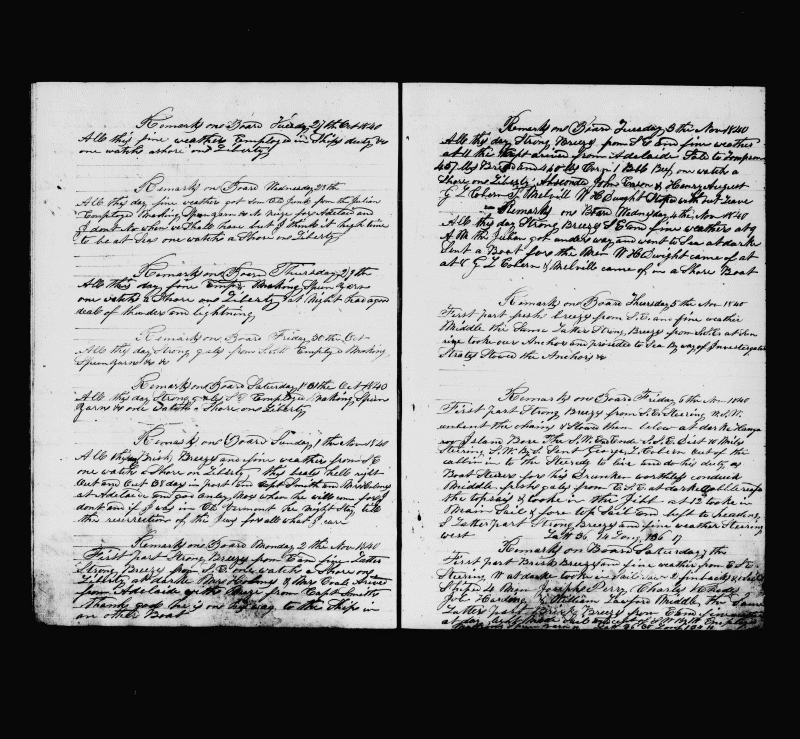 Remarks on Board Tuesday 27th Oct 1840
All this fine weather Employed in Ships duty &c
one watch ashore on Liberty
Remarks on Board Wednesday 28th
All this day fine weather got Some Old Junk from the Julian
Employed Making Spun yarn &c No News for Adelaide and
I dont No when we Shall have but I think it high time
to be at Sea one watch a Shore on Liberty
Remarks on Board Thursday 29th
All this day fine Emp'd Making Spun Yarn
one watch a Shore on Liberty at Night has a good
deal of thunder and lightning
Remarks on Board Friday 30 the Oct
All this day Strong gales from S.S.W Employed Making
Spun Yarn &c &c
Remarks on Board Saturday 31 the Oct 1840
All this day Strong gales S E Employed Making Spun
Yarn &c one Watch a Shore on Liberty
Remarks on Board Sunday 1 the Nov 1840
All this day Brisk Breezes and fine weather from S E
one watch a Shore on Liberty this beats hell right
Out and Out 38 days in port and Capt Smith and Mr
at Adelaide and god only Nos when he will come for I
dont and if I was in the Vermont he might Stay till
the resurrection of the Jews for all what I care
Remarks on Board Monday 2 the Nov 1840
First part Strong Breezes from E and fine Latter
Strong Breezes from S.E. one watch a Shore on
Liberty at darke Mr and Mr Coal Arived
from Adelaide with News from Capt Smith
thank god he is on his way to the Ship in
an other Boat
Remarks on Board Tuesday 3 the Nov 1840
All this day Strong Breezes from S E and fine weather
at 11 the Capt arived from Adelaide
467 lbs Bread and 460 lbs 1 Bbl Beef one watch a
Shore on Liberty John Eason & Henry August
G L Cohern & Melvill W H Dwight Stope with out Leave
Remarks on Board Wednesday 4 the Nov 1840
All this day Strong Breezes S E and fine weather at 9
A M this Julian got under way and went to Sea at darke
Sent a Boat for the Men W H Dwight came of at
at 8 G L Cohern & Melville came of in a Shore Boat
Remarks on Board Thursday 5 the Nov 1840
First part fresh breezes from S.E. and fine weather
Middle the Same Latter Strong Breezes from at Sun
rize took our Anchor and proceded to Sea By way of Investigator
Strates Stowed the Anchors &c
Remarks on Board Friday 6 the Nov 1840
First part Strong Breezes from S.E. Steering W.S.W.
unbent the chains & Stowed them below at darke Kanga
roo Island Bore The S.W. End S.S.E. Dist 10 Miles
Steering S.W. By S. Sent George L Cohern out of the
cabbin in to the Steerage to live and do his duty as
Boat Steerer for his Drunken worthless conduck
Middle fresh gales from E.S.E. at darke double reefs
the topsails & tooke in the Jibb at 12 tooke in
Main Sail & fore top Sail and left to heading
S Latter part Strong Breezes and fine weather Steering
west Latt 36 14 Long 136 17
Remarks on Board Saturday 7 the
First part Brisk Breezes and fine weather from E S E
Steering W at darke tooke in Sail
Shiped 4 Men Joseph Perry Charls H Rode
John Harding & William Middle the Same
Latter part Brisk Breezes from E and fine
at day light Made Sail